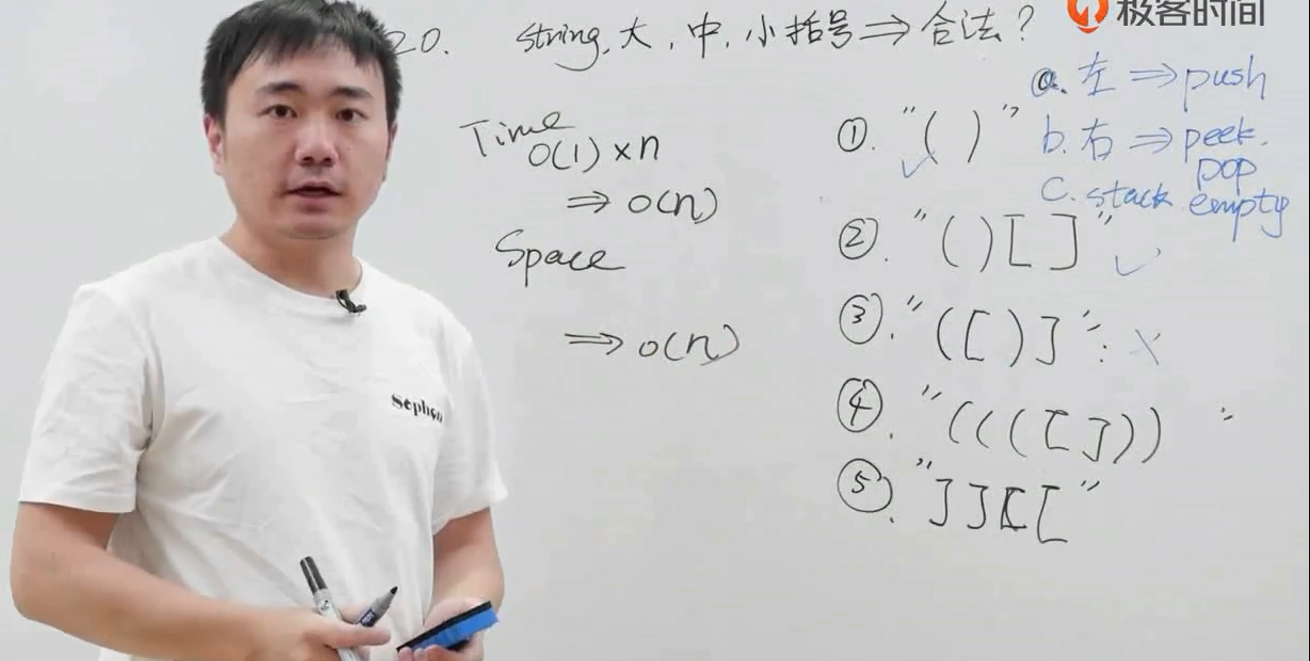 极客时间
20. string, 大, 中, 小括号 ⇒ 合法?
Time
O(1) × n
⇒ O(n)
Space
⇒ O(n)
①. "( )" ✓
②. "( ) [ ]" ✓
③. "( [ ) ]" : ×
④. "( ( ( [ ] ) ) "
⑤. "] ] [ ["
a. 左 ⇒ push
b. 右 ⇒ peek.
pop
c. stack empty